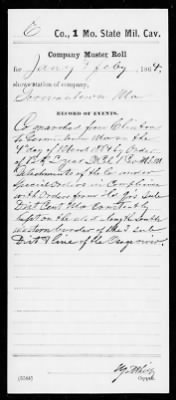 C Co., 1 Mo. State Mil. Cav.
Company Muster Roll
for Jany & Feby, 1864;
station of company,
Germantown Mo
RECORD OF EVENTS.
Co marched from Clinton
to Germantown Mo on the
day of March 1864 by Order
of
Detachments of the Co under
Special Orders in Compliance
with Orders from Hd Qrs Sub
Dist Cent Mo Constantly
kept on the along the South
Western border of the Sub
Dist & line of the Osage river
(536)
Copyist.